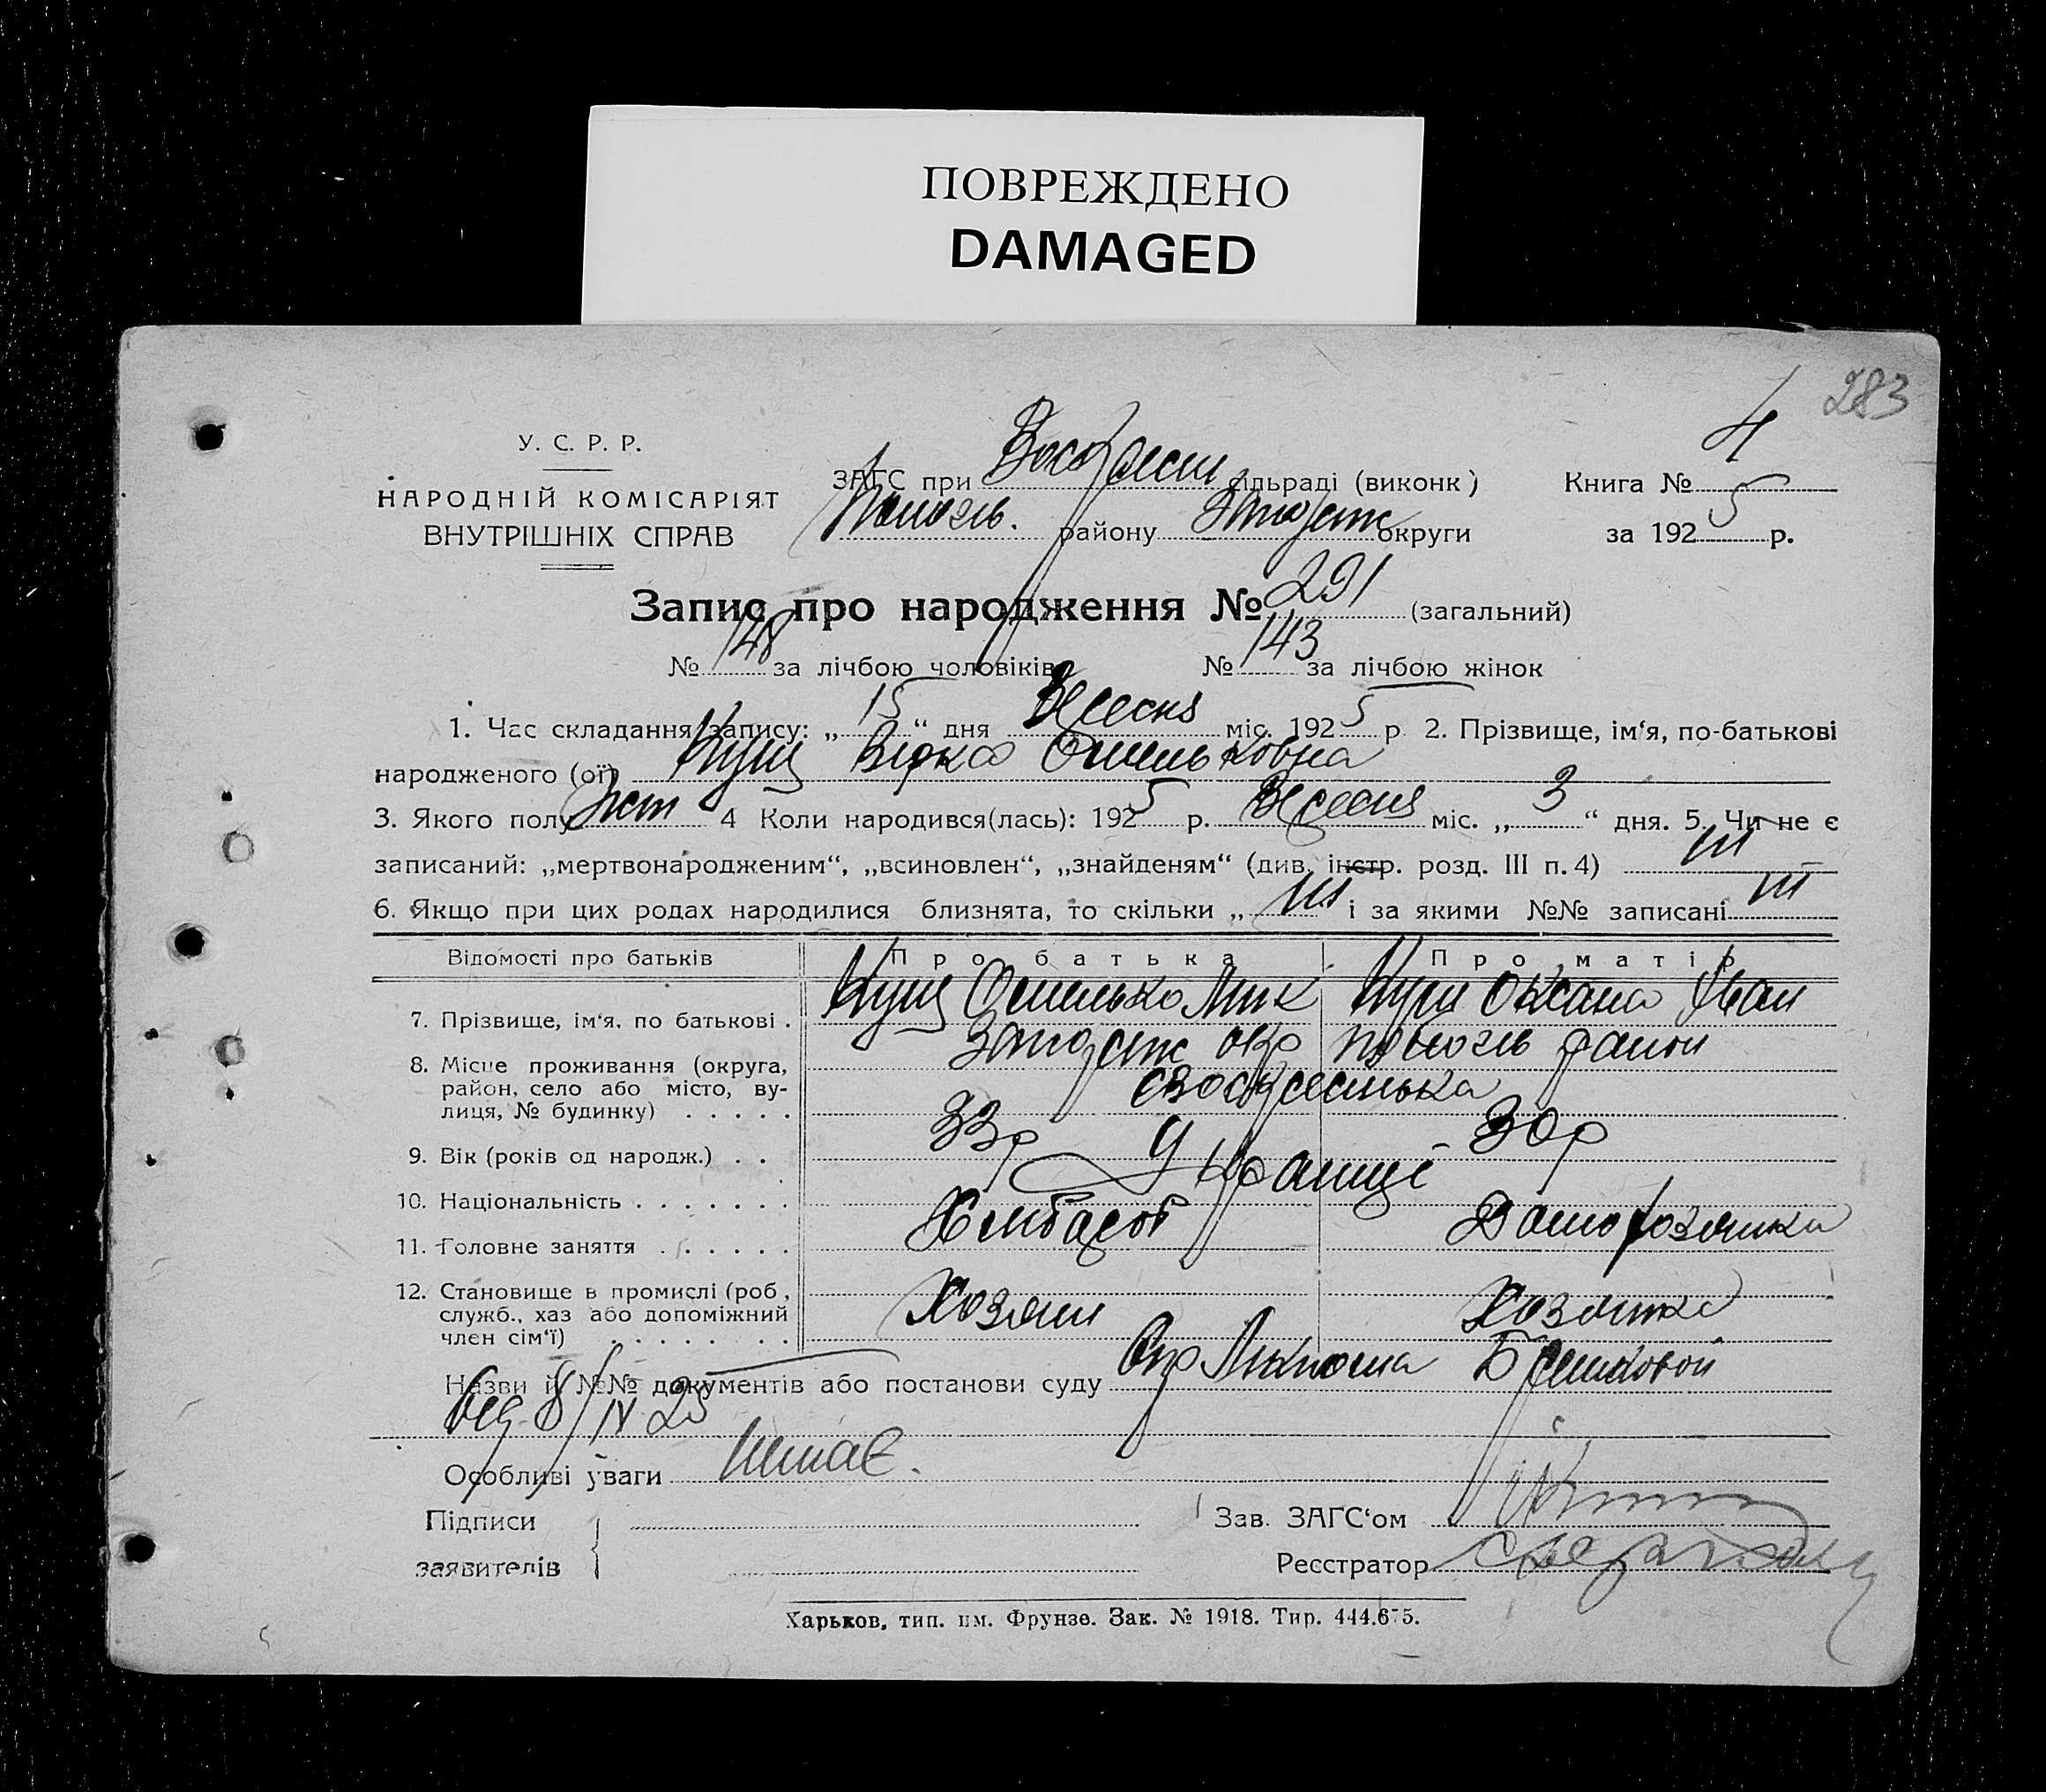 ПОВРЕЖДЕНО
DAMAGED
283
4
У. С. Р. Р.
НАРОДНІЙ КОМІСАРІЯТ
ВНУТРІШНІХ СПРАВ
ЗАГС при Воскресен сільраді (виконк)
Пологів. району Запоріж округи
Книга №
за 1925 р.
Запис про народження № 291 (загальний)
№ 148 за лічбою чоловіків № 143 за лічбою жінок
1. Час складання запису: „ 15 “ дня Вересня міс. 1925 р 2. Прізвище, ім‘я, по-батькові
народженого (ої) Кущ Вірка Омельковна
3. Якого полу жін 4 Коли народився(лась): 1925 р. Вересня міс. „ 3 “ дня. 5. Чи не є
записаний: „мертвонародженим“, „всиновлен“, „знайденям“ (див. інстр. розд. III п. 4) ні
6. Якщо при цих родах народилися близнята, то скільки „ ні і за якими №№ записані ні
Відомості про батьків Про батька Про матір
7. Прізвище, ім‘я. по батькові . Кущ Омелько Мик Кущ Оксана Іван
8. Місце проживання (округа, Запоріж окр Пологів район
район, село або місто, ву- с Воскресенька
лиця, № будинку) . . . . .
9. Вік (років од народж.) . . 33р 30р
10. Національність . . . . . . . Українці
11. Головне заняття . . . . . . Хлібороб Домохозяйка
12. Становище в промислі (роб, Хозяин Хозяйка
служб., хаз або допоміжний
член сім‘ї) . . . . . . . .
Назви й №№ документів або постанови суду
від 8/IV 25
Особливі уваги Немає.
Підписи
заявителів
Зав. ЗАГС‘ом
Реєстратор
Харьков, тип. им. Фрунзе. Зак. № 1918. Тир. 444.675.